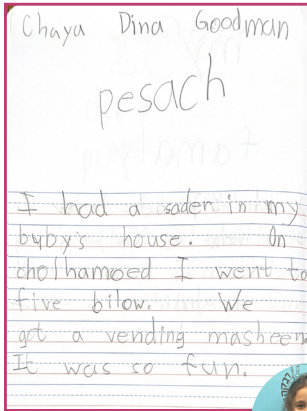 Chaya Dina Goodman
pesach
I had a sader in my
buby's house. On
cholhamoed I went to
five bilow. We
got a vending masheen
It was so fun.